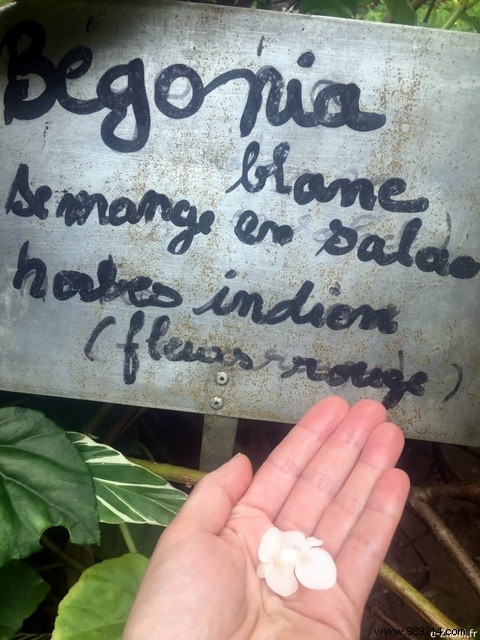 Bégonia
blanc
se mange en salade
herbes indien
(fleurs rouge)
www.989214.com